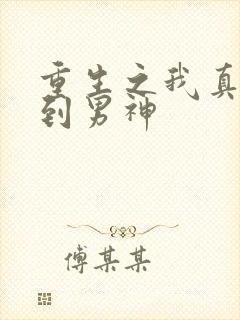 重生之我真
到男神
傅某某